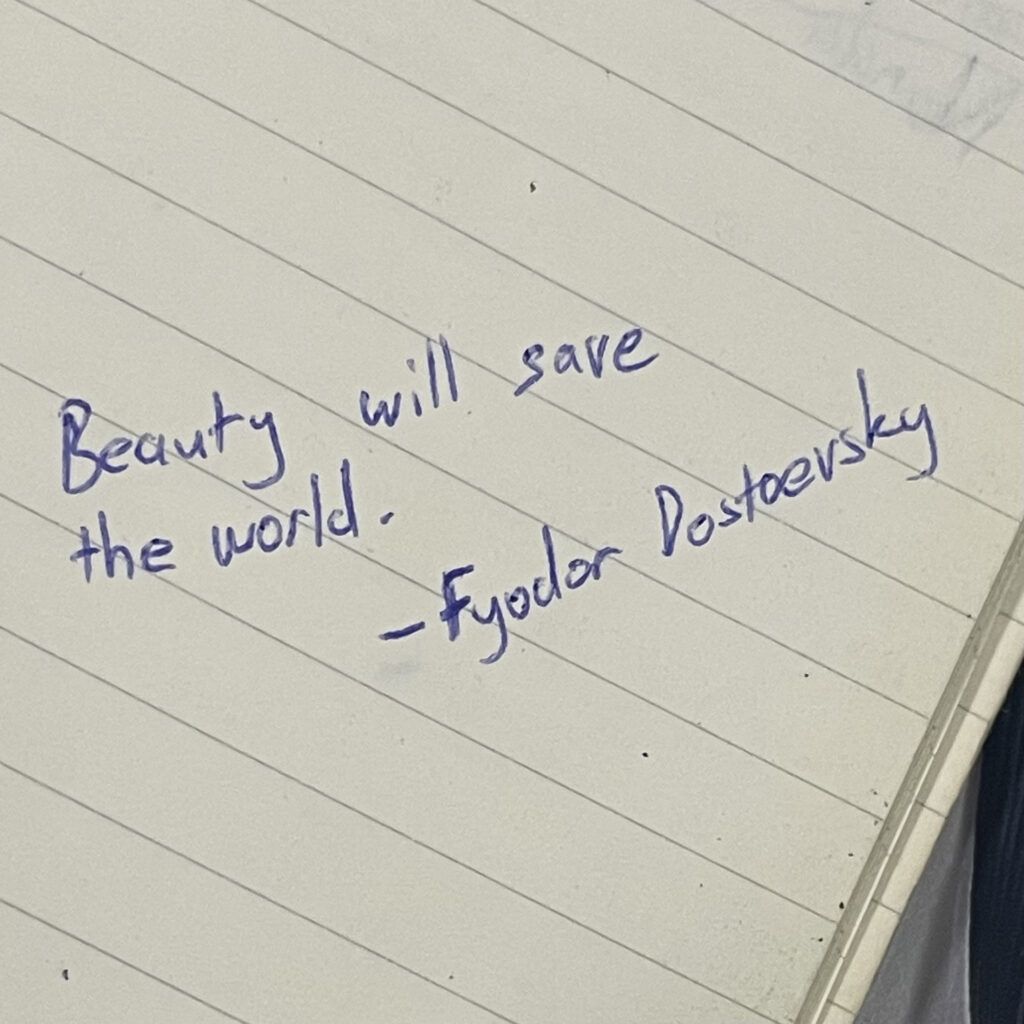 Beauty will save
the world.
- Fyodor Dostoevsky